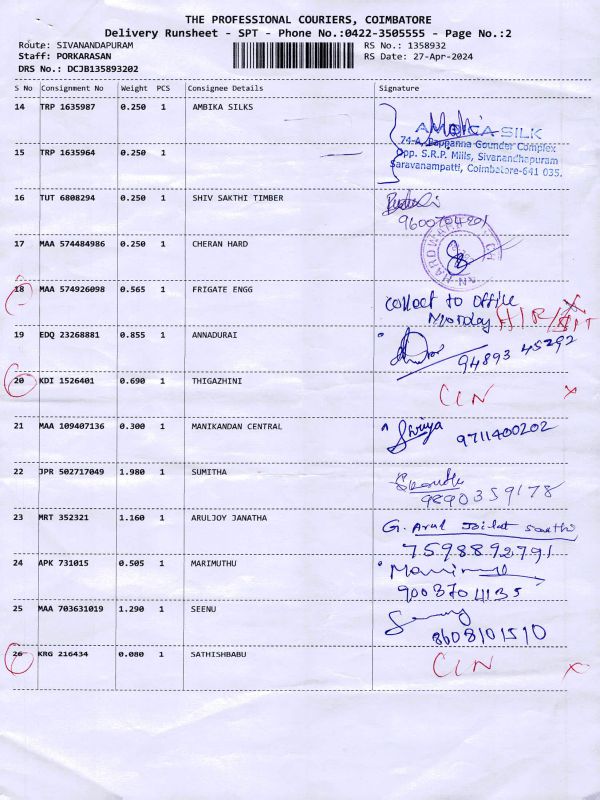 THE PROFESSIONAL COURIERS, COIMBATORE
Delivery Runsheet - SPT - Phone No.:0422-3505555 - Page No.:2
Route: SIVANANDAPURAM RS No.: 1358932
Staff: PORKARASAN RS Date: 27-Apr-2024
DRS No.: DCJB135893202
S No Consignment No Weight PCS Consignee Details Signature
14 TRP 1635987 0.250 1 AMBIKA SILKS
AMBIKA SILK
74-A, Bappanna Gounder Complex
15 TRP 1635964 0.250 1 Opp. S.R.P. Mills, Sivanandhapuram
Saravanampatti, Coimbatore-641 035.
16 TUT 6808294 0.250 1 SHIV SAKTHI TIMBER
9600704801
17 MAA 574484986 0.250 1 CHERAN HARD
18 MAA 574926098 0.565 1 FRIGATE ENGG collect to office
Monday H/R/SPT
19 EDQ 23268881 0.855 1 ANNADURAI
94893 45292
20 KDI 1526401 0.690 1 THIGAZHINI CLN x
21 MAA 109407136 0.300 1 MANIKANDAN CENTRAL 9711400202
22 JPR 502717049 1.980 1 SUMITHA
9890359178
23 MRT 352321 1.160 1 ARULJOY JANATHA G. Arul
7598892791
24 APK 731015 0.505 1 MARIMUTHU
9003701135
25 MAA 703631019 1.290 1 SEENU
8608101510
26 KRG 216434 0.080 1 SATHISHBABU CLN x